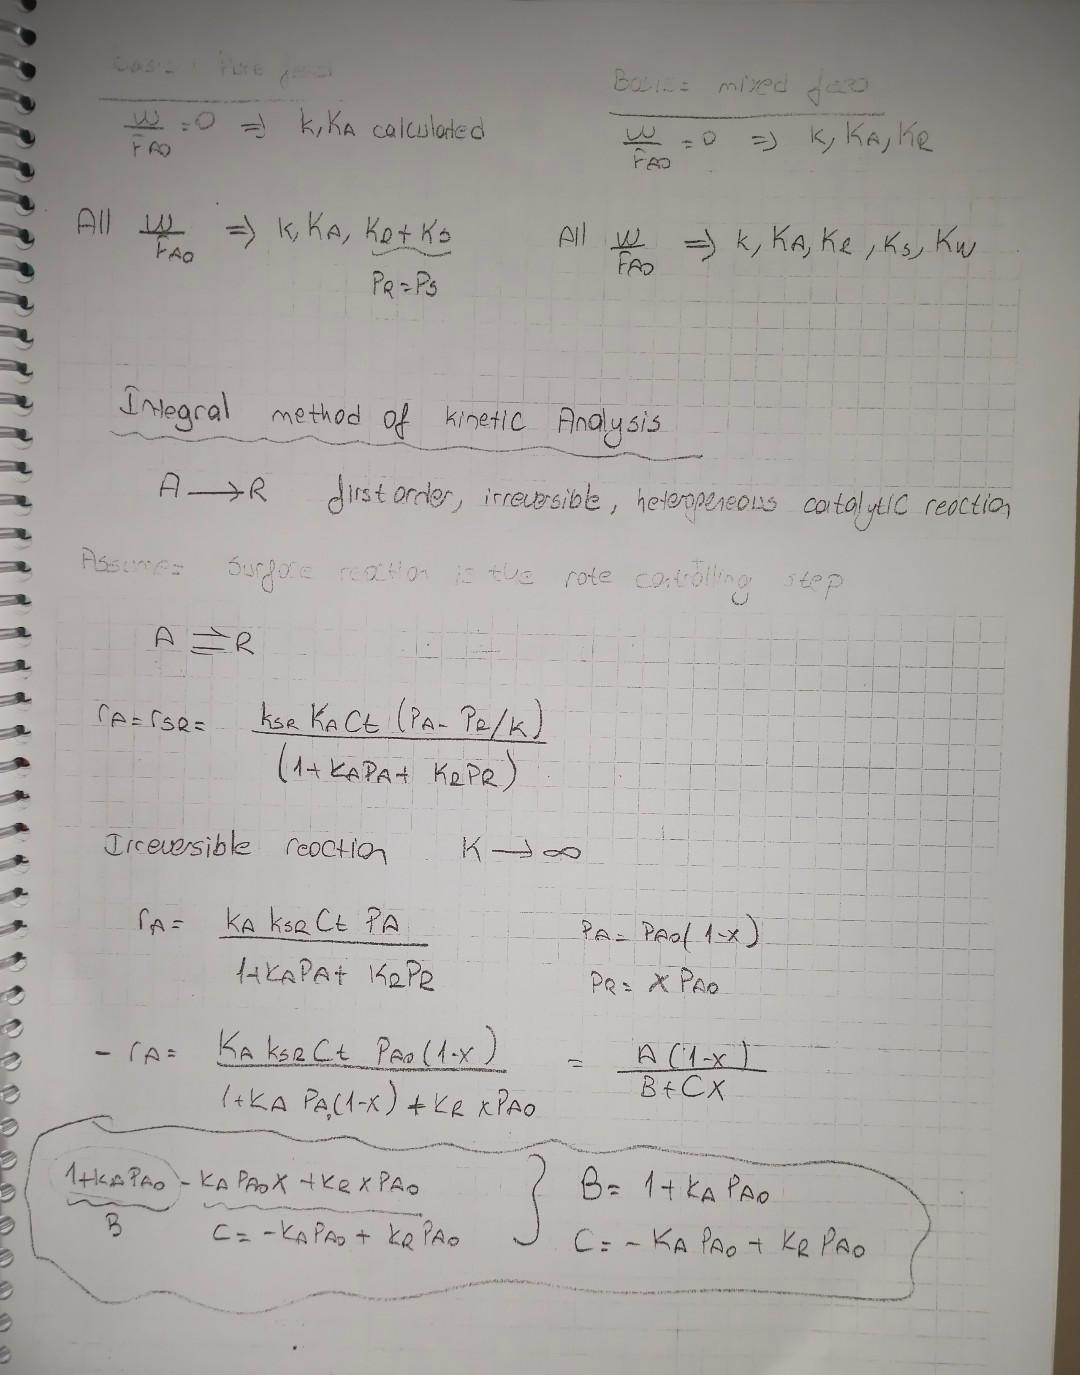 Basis: Pure feed
W/FA0 = 0 ⇒ k, KA calculated
All W/FA0 ⇒ k, KA, KR + KS
PR = PS
Basis: mixed feed
W/FA0 = 0 ⇒ k, KA, KR
All W/FA0 ⇒ k, KA, KR, KS, KW
Integral method of kinetic Analysis
A → R first order, irreversible, heterogeneous catalytic reaction
Assume: Surface reaction is the rate controlling step
A ⇌ R
rA = rSR = kSR KA Ct (PA - PR/K) / (1 + KAPA + KRPR)
Irreversible reaction K → ∞
rA = KA kSR Ct PA / 1 + KAPA + KRPR
PA = PA0(1-x)
PR = x PA0
- rA = KA kSR Ct PA0(1-x) / 1 + KA PA0(1-x) + KR xPA0 = A(1-x) / B + CX
1 + KAPA0 - KA PA0X + KR x PA0 } B = 1 + KA PA0
B C = -KAPA0 + KR PA0 C = - KA PA0 + KR PA0